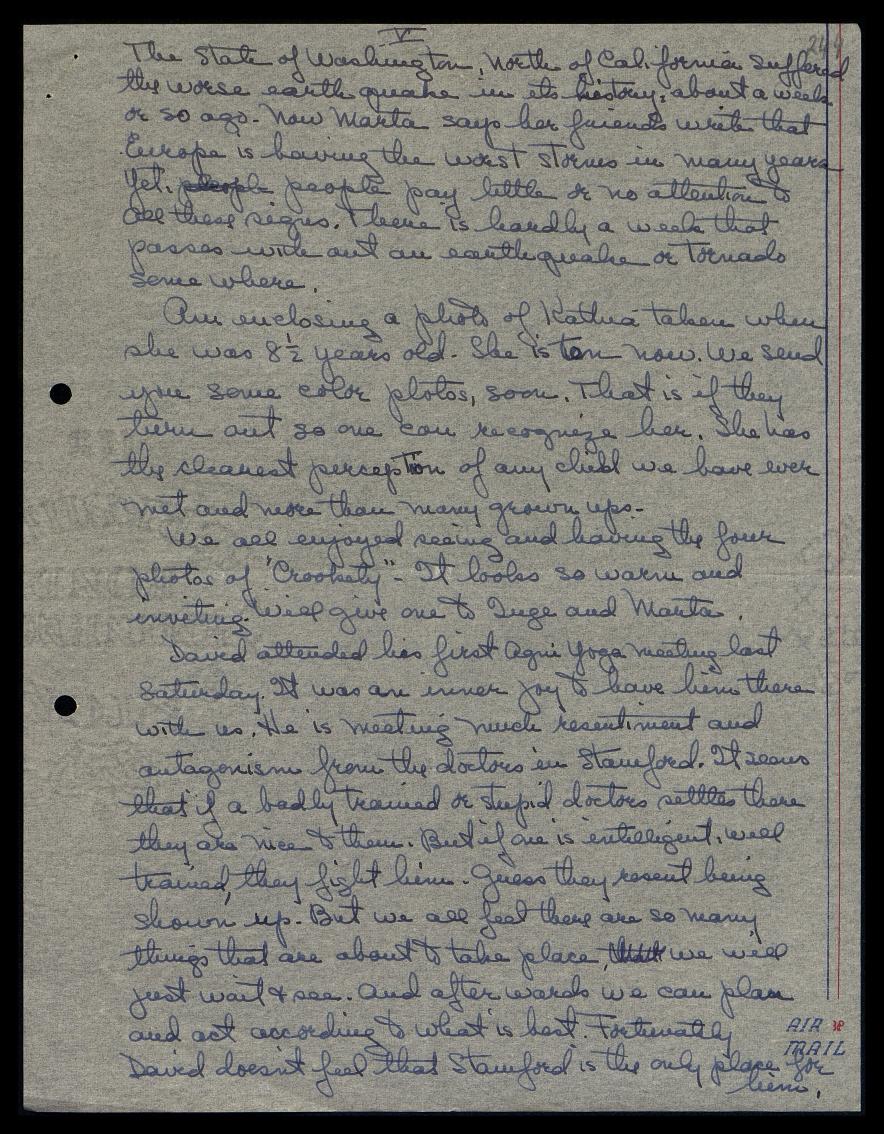 V
24
The State of Washington, North of California suffered
the worse earth quake in its history, about a week
or so ago. Now Marta says her friends write that
Europe is having the worst storms in many years
Yet, people people pay little or no attention to
all these signs. There is hardly a week that
passes with out an earthquake or Tornado
some where.
Am enclosing a photo of Kathia taken when
she was 8½ years old. She is ten now. We send
you some color photos, soon. That is if they
turn out so one can recognize her. She has
the clearest perception of any child we have ever
met and more than many grown ups.
We all enjoyed seeing and having the four
photos of "Crookety". It looks so warm and
inviting. Will give one to Inge and Marta.
David attended his first Agni Yoga meeting last
Saturday. It was an inner joy to have him there
with us. He is meeting much resentiment and
antagonism from the doctors in Stamford. It seems
that if a badly trained or stupid doctors settles there
they are nice to them. But if one is intelligent, well
trained, they fight him. Guess they resent being
shown up. But we all feel there are so many
things that are about to take place, that we will
just wait & see. And after wards we can plan
and act according to what is best. Fortunately
AIR
MAIL
David doesn't feel that Stamford is the only place for
him.